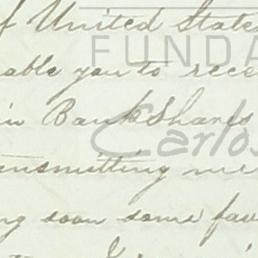 of United States
FUNDA
able you to rece
in Bank Shares
Carlos
ansmitting me
ng soon some fav